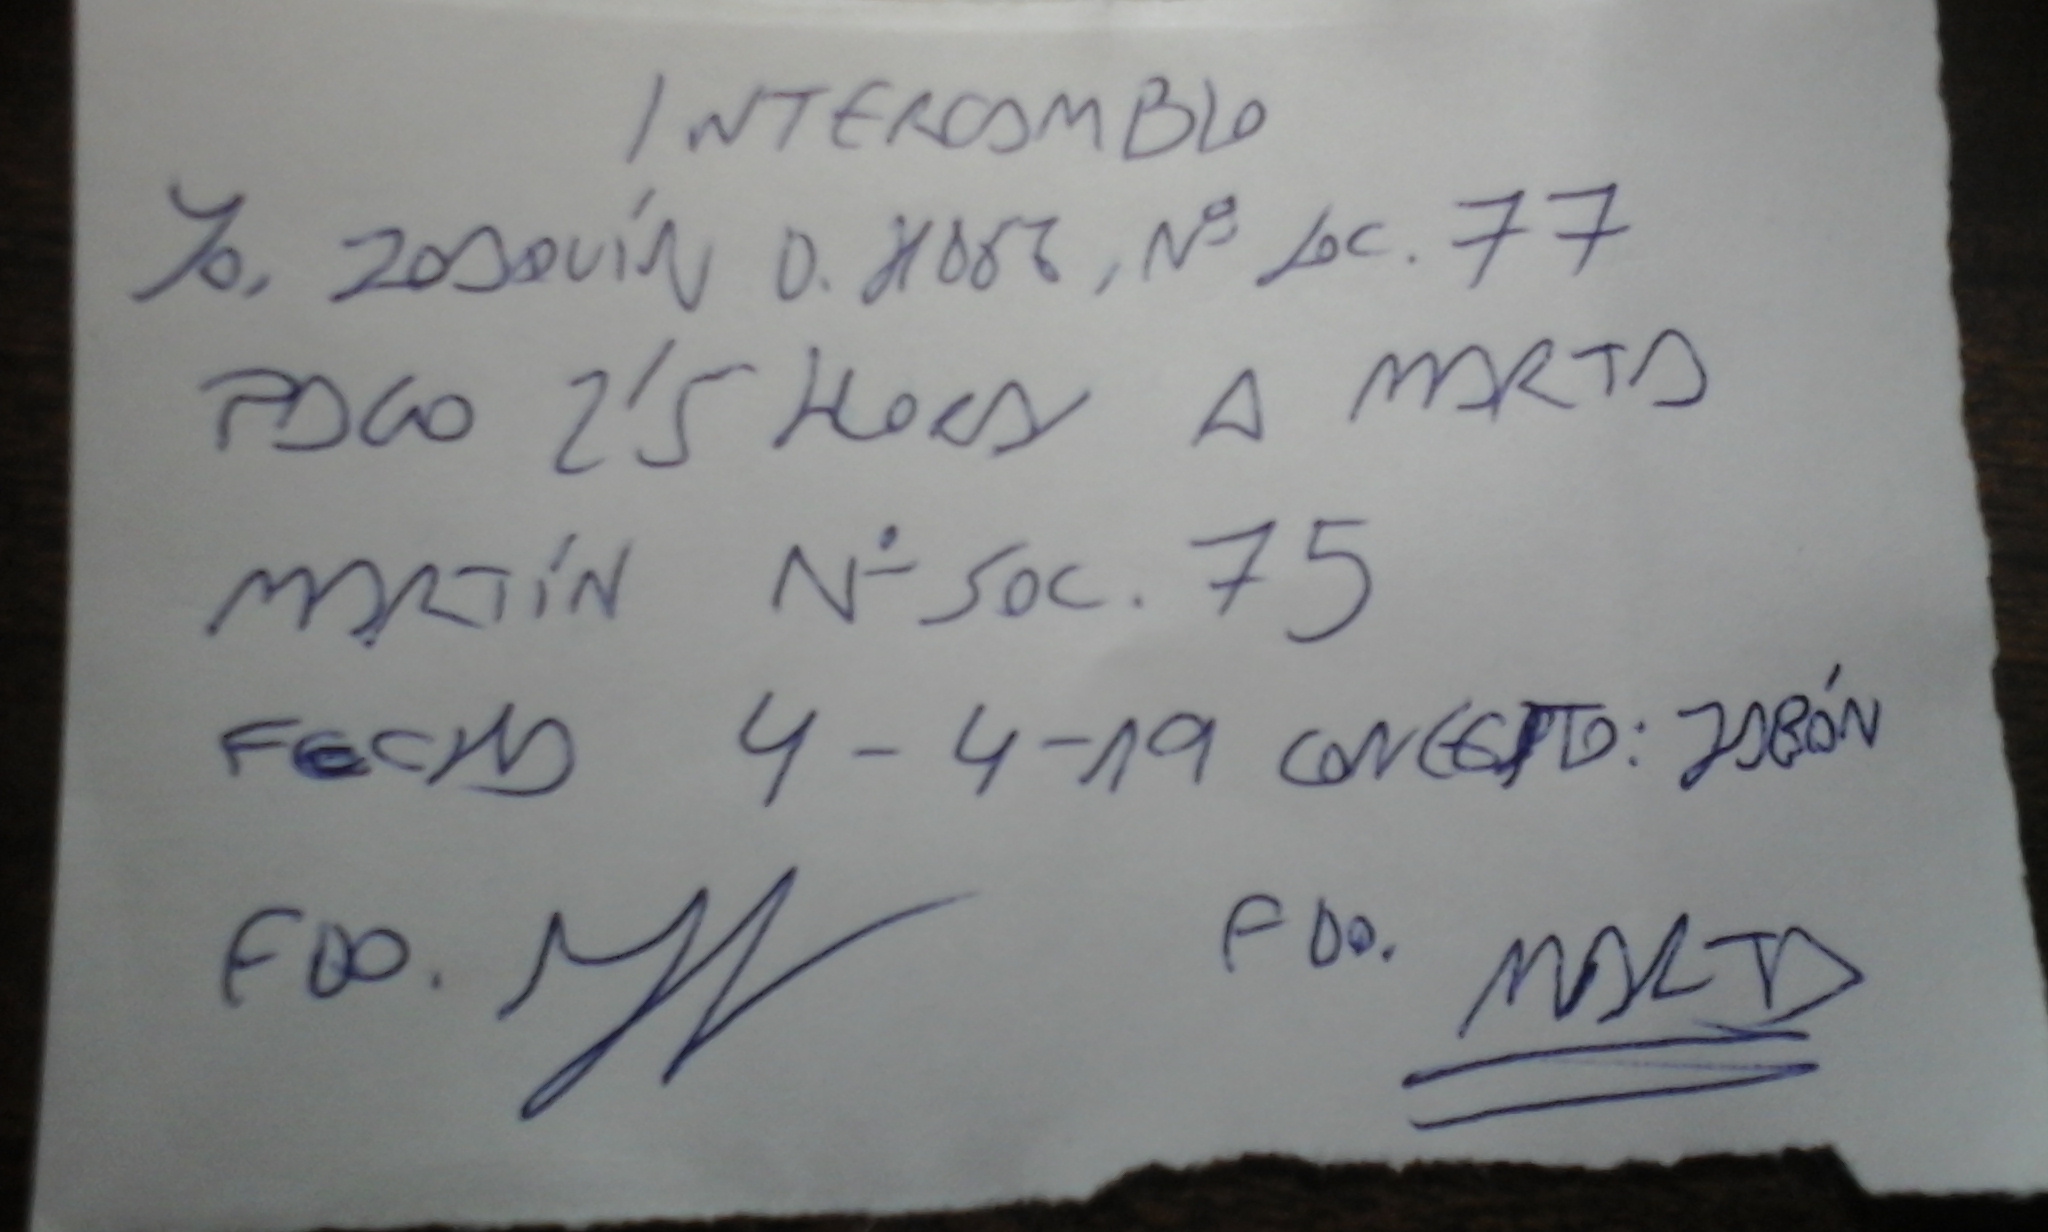 INTERCAMBIO
Yo, JOAQUÍN D. , Nº Soc. 77
PAGO 2'5 HORAS A MARTA
MARTÍN Nº SOC. 75
FECHA 4-4-19 CONCEPTO: JABÓN
FDO. FDO. MARTA